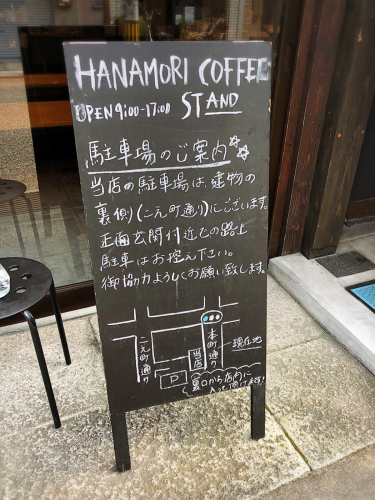 HANAMORI COFFEE
OPEN 9:00-17:00 STAND
駐車場のご案内
当店の駐車場は、建物の
裏側(二之町通り)にございます。
正面玄関付近での路上
駐車はお控え下さい。
御協力よろしくお願い致します。
二之町通り
本町通り
現在地
当店
P
裏口から店内に